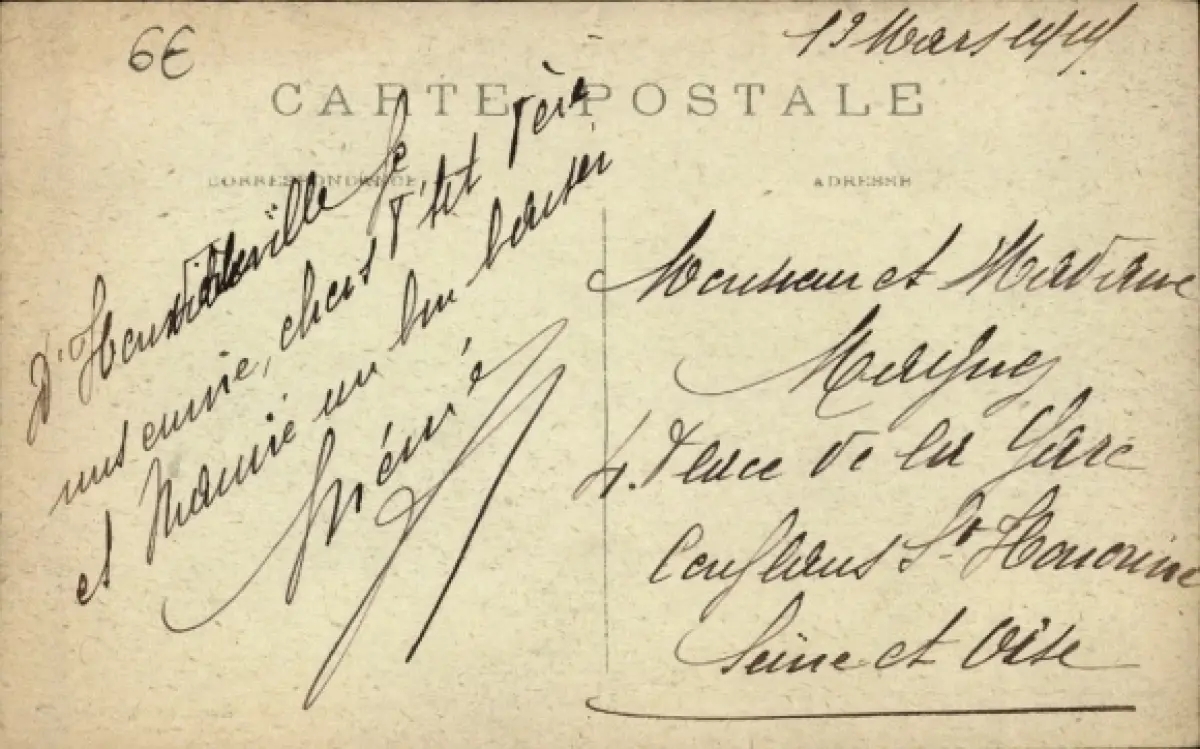 6€
19 Mars 1919
CARTE POSTALE
CORRESPONDANCE
ADRESSE
D'Heudicheville Je
envoie, chers P'tit Père
et Mamie un bon baiser
Monsieur et Madame
4. Place de la Gare
Conflans Ste Honorine
Seine et Oise